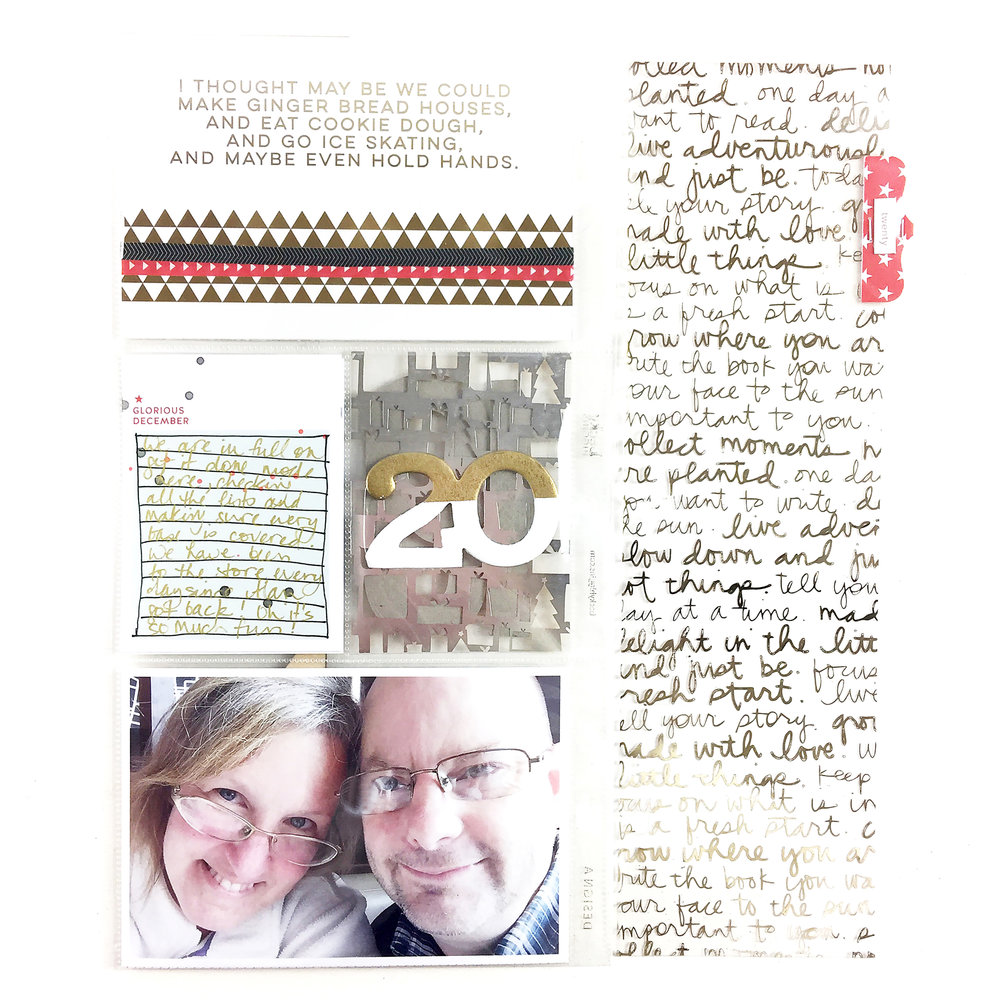 I THOUGHT MAY BE WE COULD
MAKE GINGER BREAD HOUSES,
AND EAT COOKIE DOUGH,
AND GO ICE SKATING,
AND MAYBE EVEN HOLD HANDS.
GLORIOUS
DECEMBER
We are in full on
get it done mode
here, checking
all the lists and
making sure every
base is covered.
We have been
to the store every
got back! Oh it's
so much fun!
20
DESIGN A
twenty
ollect moments no
planted. one day a
ant to read. deli
live adventurousl
and just be. toda
le your story. g
made with love.
little things. keep
ocus on what is
s a fresh start. co
row where you ar
rite the book you wa
our face to the sun
mportant to you.
ollect moments n
re planted. one da
you want to write. de
he sun. live adven
low down and ju
ot things. tell you
day at a time. mad
delight in the litt
and just be. focus
resh start. live
ell your story. grow
made with love. w
little things. keep
ocus on what is in
is a fresh start. c
row where you ar
rite the book you wa
our face to the sun
mportant to you. s
ollect moments no